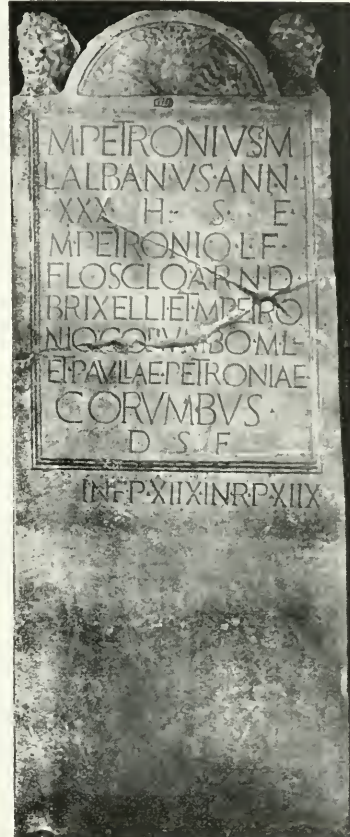 M·PETRONIVS·M
L·ALBANVS·ANN·
XXX· H· S· E·
M·PETRONIO·L·F·
FLOSCLO·ARN·D·
BRIXELLI·ET·M·PETRO
NIO·CORVMBO·M·L·
ET·PAVLLAE·PETRONIAE
CORVMBVS·
D S F
IN·F·P·XIIX·IN·R·P·XIIX